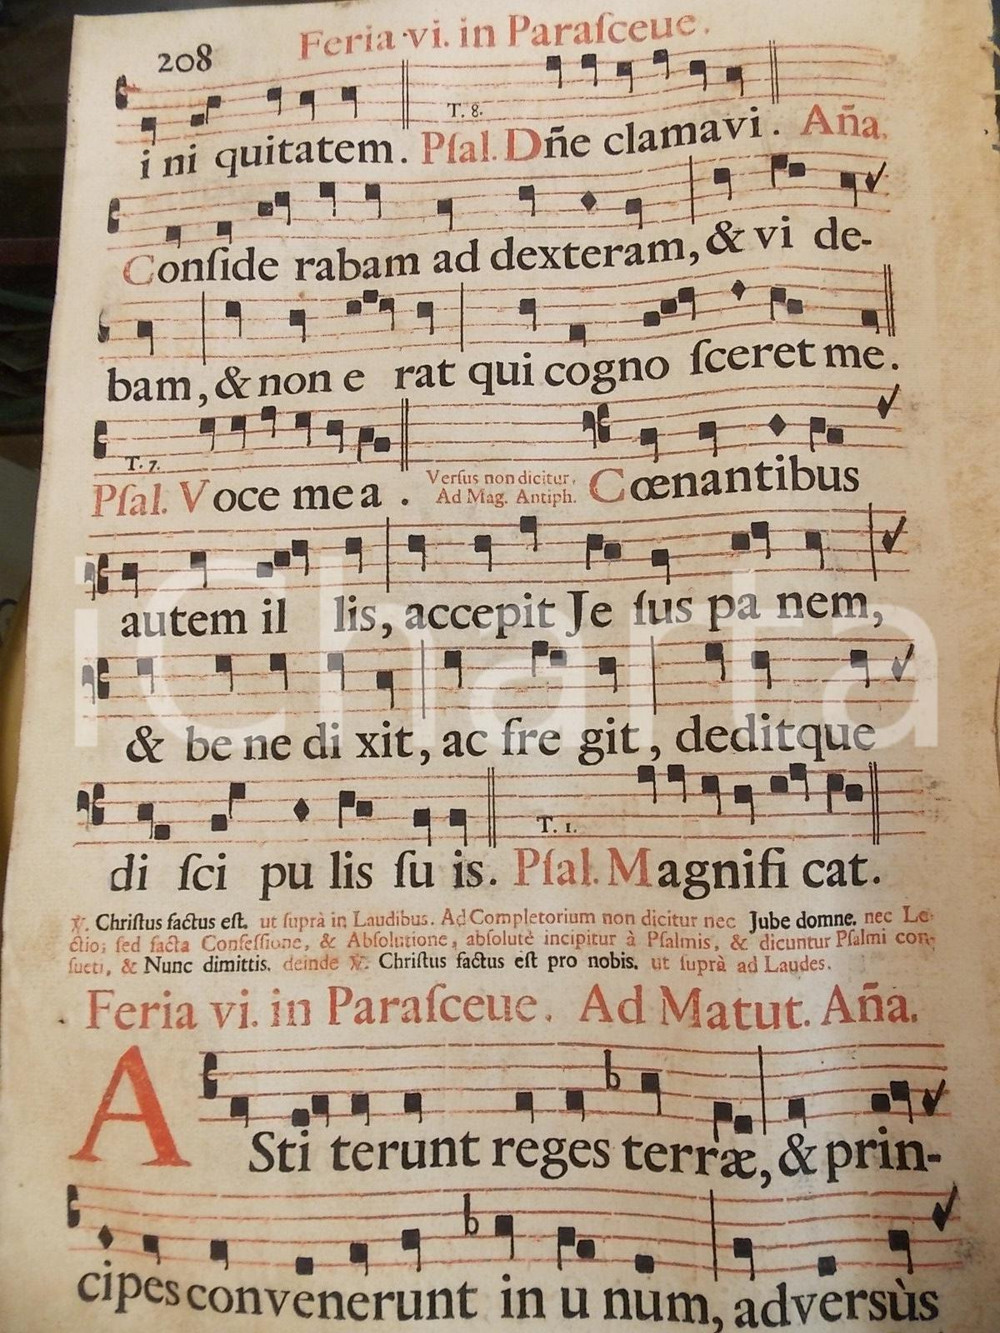 208
Feria vi. in Paraſceue.
T. 8.
i ni quitatem. Pſal. Dñe clamavi. Aña.
Conſide rabam ad dexteram, & vi de-
bam, & non e rat qui cogno ſceret me.
T. 7.
Pſal. Voce mea . Verſus non dicitur. Ad Mag. Antiph. Cœnantibus
autem il lis, accepit Je ſus pa nem,
& be ne di xit, ac fre git, deditque
T. 1.
di ſci pu lis ſu is. Pſal. Magnifi cat.
℣. Chriſtus factus eſt. ut ſuprà in Laudibus. Ad Completorium non dicitur nec Jube domne. nec Le-
ctio; ſed facta Confeſſione, & Abſolutione, abſolutè incipitur à Pſalmis, & dicuntur Pſalmi con-
ſueti, & Nunc dimittis. deinde ℣. Chriſtus factus eſt pro nobis. ut ſuprà ad Laudes.
Feria vi. in Paraſceue. Ad Matut. Aña.
ASti terunt reges terræ, & prin-
cipes convenerunt in u num, adversùs
iCharta